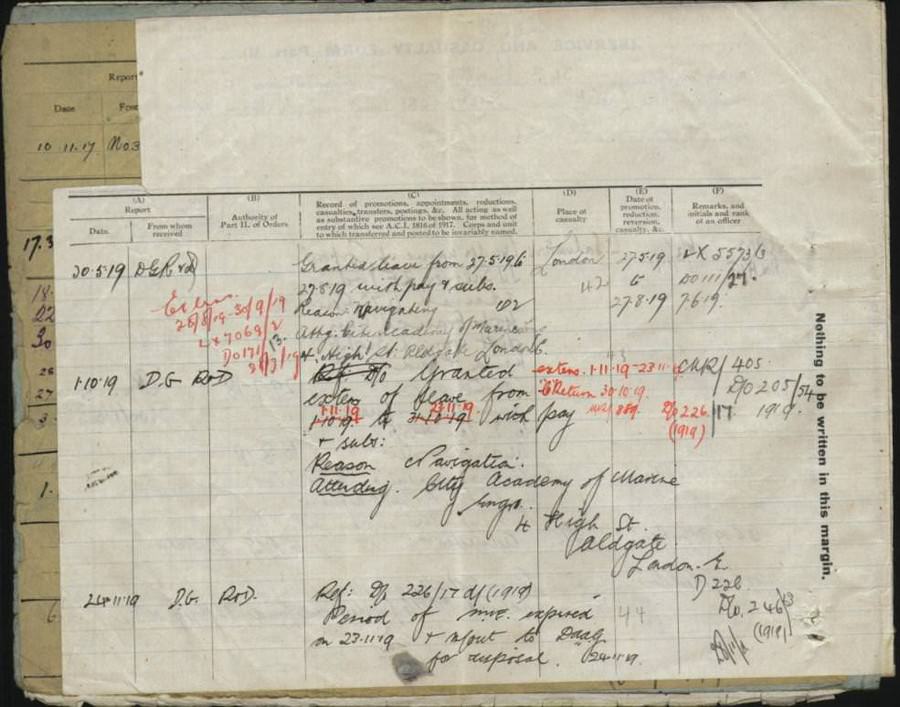 Report
Date
10.11.17 No3
(A)
Report
Date.
From whom received
(B)
Authority of Part II. of Orders
(C)
Record of promotions, appointments, reductions,
casualties, transfers, postings, &c. All acting as well
as substantive promotions to be shown, for method of
entry of which see A.C.I. 1816 of 1917. Corps and unit
to which transferred and posted to be invariably named.
(D)
Place of casualty
(E)
Date of promotion, reduction, reversion, casualty, &c.
(F)
Remarks, and initials and rank of an officer
17.3
20.5.19 Granted leave from 27.5.19 to London 27.5.19 LX 5573/3
27.8.19 with pay & subs. 42 to DO 111/27
Reason: Navigating 27.8.19 7.6.19
Extens.
26/8/19-30/9/19
Attg. City Academy of Marine
4. High St. Aldgate London E.
DO 171/13.
1.10.19 D.G R&D Granted extens. 1.11.19-23.11. CMR/405
extens of leave from to Return 30.10.19. D/O 205/54
1.11.19 23.11.19
1.10.19 to 31.10.19 with pay D/O 226/17 1919.
(1919)
& subs:
Reason Navigation.
Attending. City Academy of Marine
Engrs.
4 High St.
Aldgate
London. E
D 226
24.11.19 D.G. R&D. Ref: D/O 226/17 d/ (1919) D/O. 246/
Period of expired 44 (1919)
on 23.11.19 & to
for disposal. 24.11.19.
Nothing to be written in this margin.